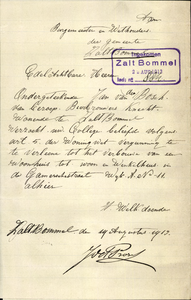 Aan
Burgemeester en Wethouders
der gemeente
Zaltbommel
Ingekomen
Zalt Bommel
Edelachtbare Heeren
Ondergeteekende Jan van den Bosch
van beroep
wonende te Zaltbommel
verzoekt uw College beleefd volgens
art 5 der Woningwet vergunning te
verleenen tot het verbouwen van een
woonhuis tot woon en winkelhuis in
de Gamerschestraat Wijk A No
alhier
't Welk doende
Zaltbommel den 19 Augustus 1912